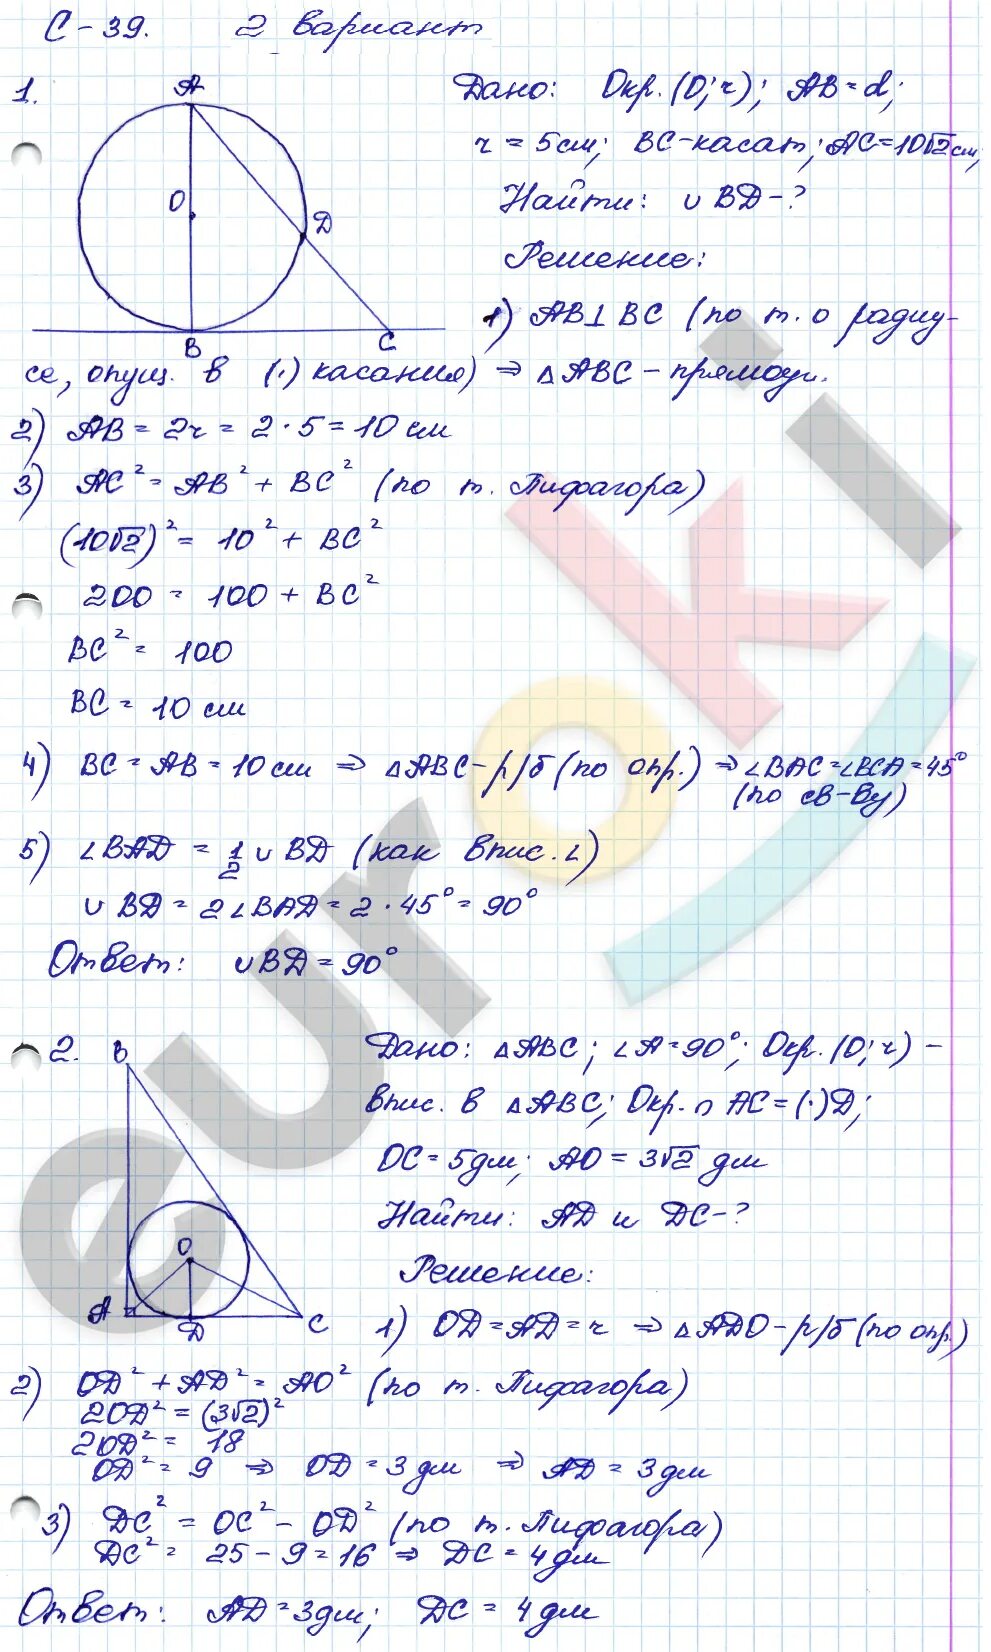 С-39. 2 вариант
1.
A
O
D
B
C
Дано: Окр.(O; r); AB=d;
r = 5см; BC-касат; AC=10√2см;
Найти: ∪BD-?
Решение:
1) AB⊥BC (по т. о радиу-
се, опущ. в (·) касания) ⇒ △ABC - прямоуг.
2) AB = 2r = 2·5 = 10 см
3) AC² = AB² + BC² (по т. Пифагора)
(10√2)² = 10² + BC²
200 = 100 + BC²
BC² = 100
BC = 10 см
4) BC = AB = 10 см ⇒ △ABC - р/б (по опр.) ⇒ ∠BAC=∠BCA=45°
(по св-ву)
5) ∠BAD = 1/2 ∪BD (как впис. ∠)
∪BD = 2∠BAD = 2·45° = 90°
Ответ: ∪BD = 90°
2.
B
O
A
D
C
Дано: △ABC; ∠A=90°; Окр.(O; r) -
впис. в △ABC; Окр. ∩ AC=(·)D;
OC = 5дм; AO = 3√2 дм
Найти: AD и DC-?
Решение:
1) OD=AD=r ⇒ △ADO - р/б (по опр.)
2) OD² + AD² = AO² (по т. Пифагора)
2OD² = (3√2)²
2OD² = 18
OD² = 9 ⇒ OD = 3 дм ⇒ AD = 3 дм
3) DC² = OC² - OD² (по т. Пифагора)
DC² = 25 - 9 = 16 ⇒ DC = 4 дм
Ответ: AD = 3дм; DC = 4 дм
euroki